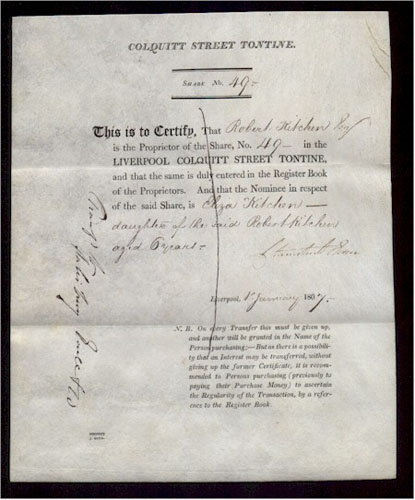 COLQUITT STREET TONTINE.
SHARE No. 49-
This is to Certify, That Robert Kitchen Esq
is the Proprietor of the Share, No. 49- in the
LIVERPOOL COLQUITT STREET TONTINE,
and that the same is duly entered in the Register Book
of the Proprietors. And that the Nominee in respect
of the said Share, is Eliza Kitchen -
daughter of the said Robert Kitchen
aged 6 years -
Liverpool, 1st January 1807.
N. B. On every Transfer this must be given up,
and another will be granted in the Name of the
Person purchasing:—But as there is a possibili-
ty that an Interest may be transferred, without
giving up the former Certificate, it is recom-
mended to Persons purchasing (previously to
paying their Purchase Money) to ascertain
the Regularity of the Transaction, by a refe-
rence to the Register Book.